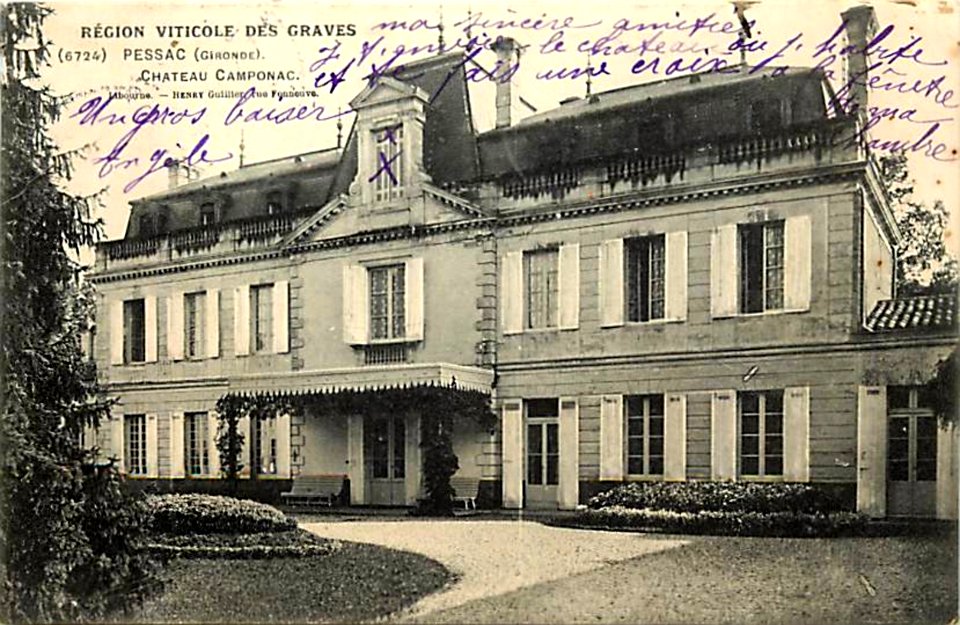 RÉGION VITICOLE DES GRAVES
(6724) PESSAC (GIRONDE).
CHATEAU CAMPONAC.
Libourne. — HENRY Guillier, rue Fonneuve.
ma sincère amitié
J't'envoie le chateau où j'habite
et je fais une croix à la fenêtre
de ma
chambre
Un gros baiser
Angèle
X
X